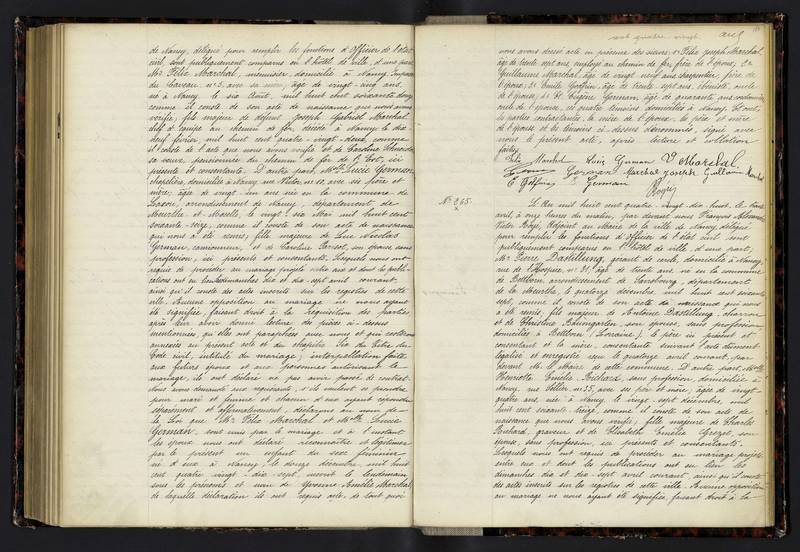 de Nancy, délégué pour remplir les fonctions d'Officier de l'état
civil, sont publiquement comparus en l'hôtel de ville, d'une part,
Mr Félix Marchal, menuisier, domicilié à Nancy, Impasse
du Carreau no 3, avec sa mère, âgé de vingt-cinq ans,
né à Nancy, le six Août, mil huit cent soixante-douze,
comme il conste de son acte de naissance que nous avons
vérifié; fils majeur de défunt Joseph Gabriel Marchal
chef d'équipe au chemin de fer, décédé à Nancy le dix
février, mil huit cent quatre-vingt-deux, comme
il conste de l'acte que nous avons vérifié et de Caroline
sa veuve, pensionnaire du chemin de fer de l'Est, ici
présente et consentante. D'autre part, Melle Lucie German
chapelière, domiciliée à Nancy, rue Victor no 10, avec ses père et
mère; âgée de vingt-un ans née en la commune de
arrondissement de Nancy, département de
Meurthe et Moselle, le vingt-six Mai mil huit cent
soixante-seize, comme il conste de son acte de naissance
qui nous a été remis; fille majeure de Luc Nicolas
German, camionneur, et de Caroline Parisot, son épouse sans
profession, ici présents et consentants. Lesquels nous ont
requis de procéder au mariage projeté entre eux et dont les publi-
cations ont eu lieu les dimanches dix et dix-sept avril courant,
ainsi qu'il conste des actes inscrits sur les registres de cette
ville. Aucune opposition au mariage ne nous ayant
été signifiée, faisant droit à la réquisition des parties,
après leur avoir donné lecture des pièces ci-dessus
mentionnées, qu'elles ont paraphées avec nous et qui resteront
annexées au présent acte et du chapitre Six du titre du
Code civil, intitulé du mariage; interpellation faite
aux futurs époux et aux personnes autorisant le
mariage, ils ont déclaré ne pas avoir passé de contrat.
Nous avons demandé aux requérants, s'ils veulent se prendre
pour mari et femme et chacun d'eux ayant répondu
séparément et affirmativement, déclarons au nom de
la Loi que Mr Félix Marchal et Melle Lucie
German, sont unis par le mariage et à l'instant
les époux nous ont déclaré reconnaître et légitimer
par le présent un enfant du sexe féminin
né d'eux à Nancy, le douze décembre, mil huit
cent quatre-vingt-dix-sept, inscrit le lendemain
sous les prénoms et nom de Yvonne Amélie Marchal
de laquelle déclaration ils ont requis acte, de tout quoi
cent quatre-vingt
nous avons dressé acte en présence des sieurs: 1o Félix Joseph Marchal,
âgé de trente sept ans, employé au chemin de fer, frère de l'époux; 2o
Guillaume Marchal, âgé de vingt neuf ans, charpentier, frère de
l'époux; 3o Emile âgé de trente-sept ans, ébéniste, oncle
de l'épouse; 4o Eugène German, âgé de quarante ans
oncle de l'épouse, ces quatre témoins domiciliés à Nancy. Et ont,
les parties contractantes, la mère de l'époux, le père et mère
de l'épouse et les témoins ci-dessus dénommés, signé avec
nous le présent acte, après lecture et collation
faites.
Félix Marchal Lucie German Ve Marchal
German Marchal Joseph Guillaume Marchal
German
No 265.
L'An mil huit cent quatre-vingt-dix huit, le trente
avril, à onze heures du matin, par devant nous François Alexandre
Victor Adjoint au Maire de la ville de Nancy délégué
pour remplir les fonctions d'Officier de l'état civil sont
publiquement comparus en l'Hôtel de ville, d'une part,
Mr Pierre Dastillung, gérant de cercle, domicilié à Nancy,
rue de l'Hospice, no 31, âgé de trente ans, né en la commune
de Bettborn, arrondissement de Sarrebourg, département
de la Meurthe, le quatorze décembre mil huit cent soixante
sept, comme il conste de son acte de naissance qui nous
a été remis, fils majeur de Antoine Dastillung, charron
et de Christine Baumgarten, son épouse, sans profession,
domiciliés à Bettborn (Lorraine); le père ici présent et
consentant et la mère, consentante suivant l'acte dûment
légalisé et enregistré reçu le quatorze avril courant, par
devant Mr le Maire de cette commune. D'autre part, Melle
Henriette Emélie Pichard, sans profession, domiciliée à
Nancy, rue no 55, avec ses père et mère, âgée de vingt-
quatre ans, née à Nancy, le vingt-sept décembre, mil
huit cent soixante-treize, comme il conste de son acte de
naissance que nous avons vérifié; fille majeure de Charles
Pichard, graveur et de Elisabeth Amélie son
épouse, sans profession, ici présents et consentants.
Lesquels nous ont requis de procéder au mariage projeté
entre eux et dont les publications ont eu lieu les
dimanches dix et dix-sept avril courant, ainsi qu'il conste
des actes inscrits sur les registres de cette ville. Aucune opposition
au mariage ne nous ayant été signifiée, faisant droit à la